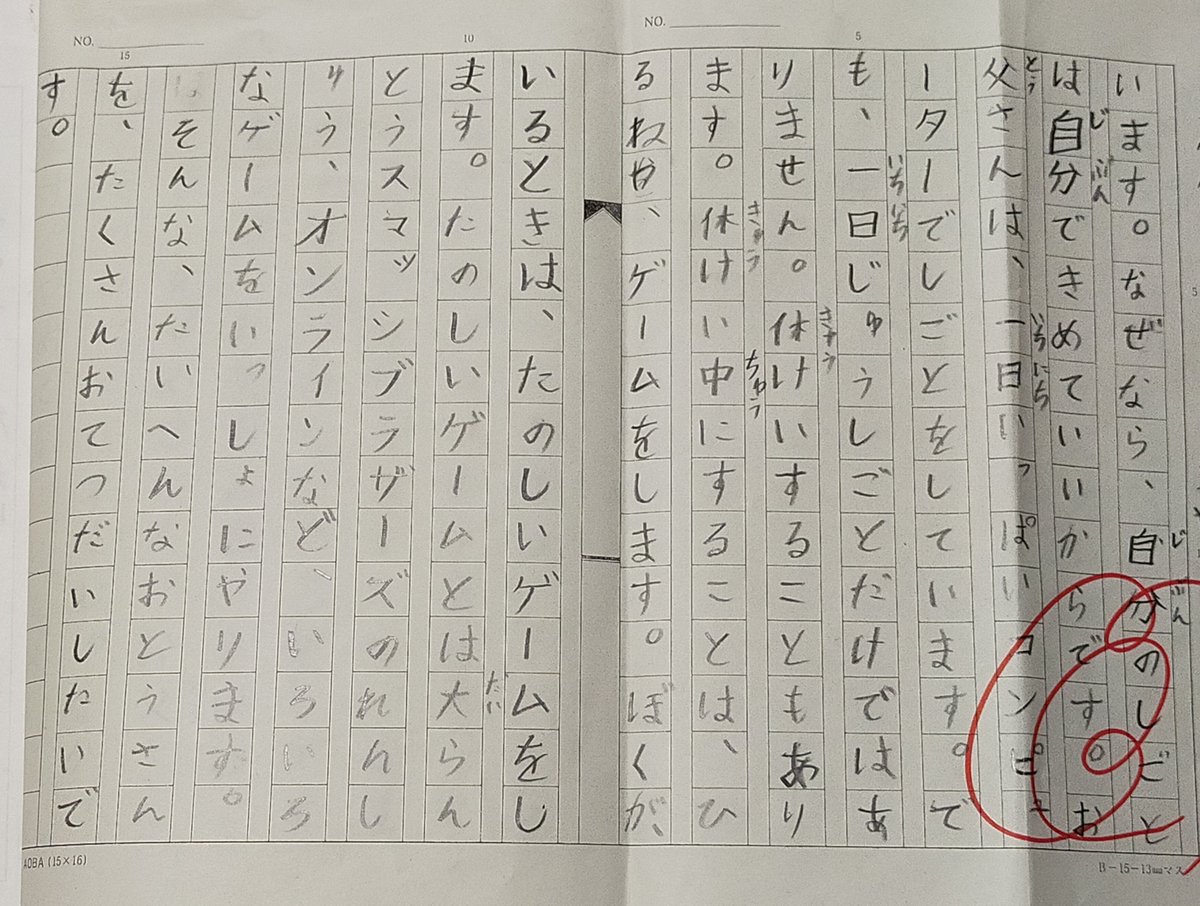 NO.
NO.
5
10
15
います。なぜなら、自分のしごと
じ ぶん
は自分できめていいからです。お
じ ぶん
父さんは、一日いっぱいコンピュ
とう いち にち
ーターでしごとをしています。で
も、一日じゅうしごとだけではあ
いち にち
りません。休けいすることもあり
きゅう
ます。休けい中にすることは、ひ
きゅう ちゅう
るねや、ゲームをします。ぼくが、
いるときは、たのしいゲームをし
ます。たのしいゲームとは大らん
だい
とうスマッシブラザーズのれんし
ゅう、オンラインなど、いろいろ
なゲームをいっしょにやります。
そんな、たいへんなおとうさん
を、たくさんおてつだいしたいで
す。
AOBA (15×16)
B-15-13㎜マス